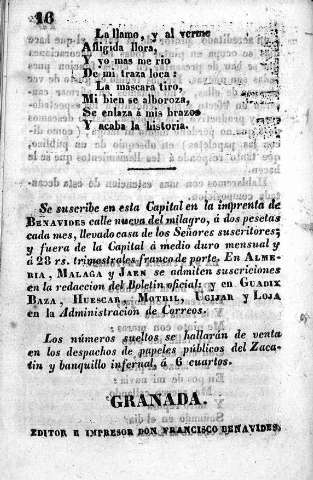 16
La llamo, y al verme
Afligida llora,
Y yo mas me rio
De mi traza loca:
La máscara tiro,
Mi bien se alboroza,
Se enlaza á mis brazos
Y acaba la historia.
Se suscribe en esta Capital en la imprenta de
BENAVIDES calle nueva del milagro, á dos pesetas
cada mes, llevado casa de los Señores suscritores;
y fuera de la Capital á medio duro mensual y
á 28 rs. trimestrales franco de porte. En ALME-
RIA, MALAGA y JAEN se admiten suscriciones
en la redaccion del Boletin oficial; y en GUADIX
BAZA, HUESCAR, MOTRIL, UGIJAR y LOJA
en la Administracion de Correos.
Los números sueltos se hallarán de venta
en los despachos de papeles públicos del Zaca-
tin y banquillo infernal, á 6 cuartos.
GRANADA.
EDITOR E IMPRESOR DON FRANCISCO BENAVIDES.